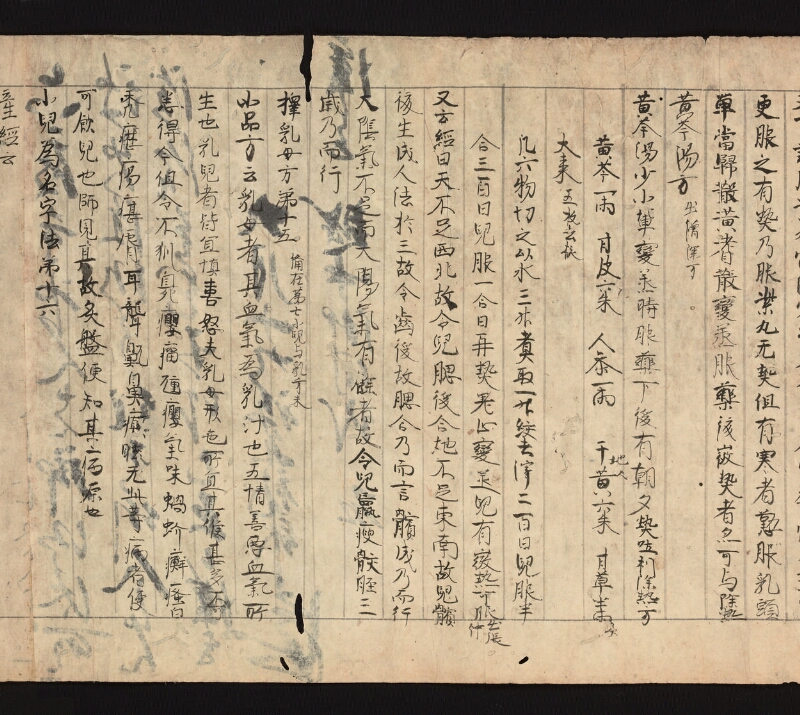 更服之有熱乃服柴丸无熱但有寒者熱服乳頭
單當歸散黃耆散變蒸服藥後故熱者名可与除熱
黃芩湯方 出僧深方
黃芩湯少小輩變蒸時服藥下後有朝夕熱吐利除熱方
黃芩一兩 甘皮六朱 人參一兩 干地黃六朱 甘草半兩
大棗五枚去核
凡六物切之以水三升煮取一升絞去滓二百日兒服半
合三百日兒服一合日再熱差止變蒸兒有微熱可服
又方經曰天不足西北故令兒腮後合地不足東南故兒髕
後生成人法於三故令齒後故腮合乃而言髕成乃而行
大陰氣不足而大陽氣有餘者故令兒羸瘦骸脛三
歲乃而行
擇乳母方第十五
小品方云乳母者其血氣爲乳汁也五情善惡血氣所
生也乳兒者皆宜慎喜怒夫乳母形色所宜其候甚多不可
悉得今但令不狐臭癭瘤腫癭氣味蝸蚧癬瘙白
禿癧瘍瘑脣耳聾鼽鼻癲癇无此等病者便
可飲兒也師見其故灸盤便知其病源也
小兒爲名字法第十六
產經云